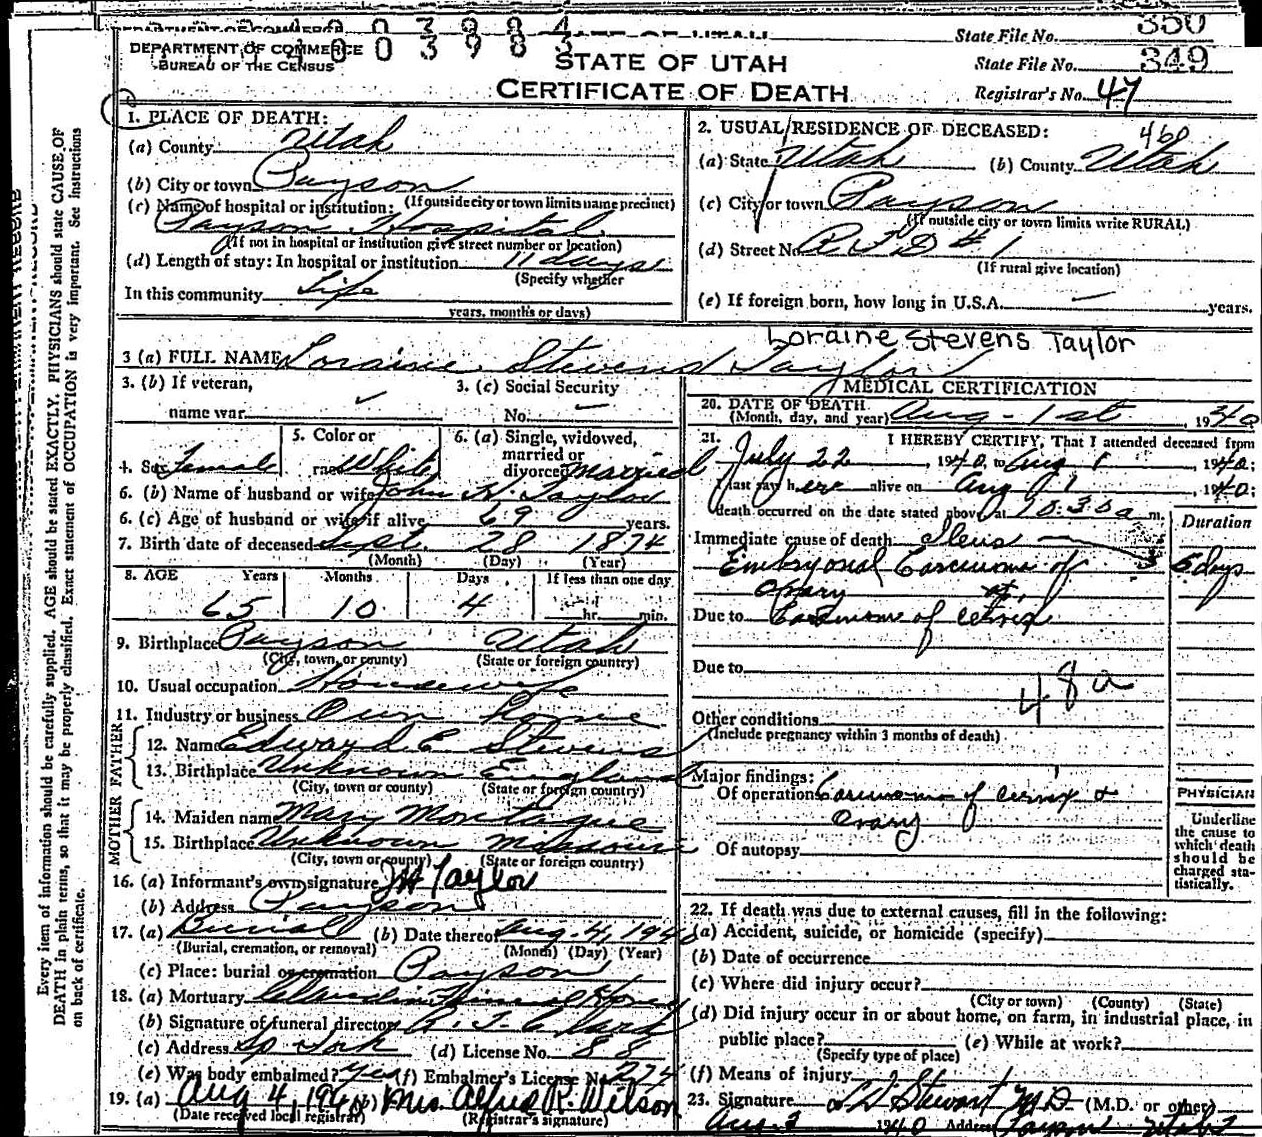 DEPARTMENT OF COMMERCE
BUREAU OF THE CENSUS
STATE OF UTAH
CERTIFICATE OF DEATH
State File No. 350
State File No. 349
Registrar's No. 47
1. PLACE OF DEATH:
(a) County Utah
(b) City or town Payson
(If outside city or town limits name precinct)
(c) Name of hospital or institution:
Payson Hospital
(If not in hospital or institution give street number or location)
(d) Length of stay: In hospital or institution 11 days
(Specify whether
In this community Life
years, months or days)
2. USUAL RESIDENCE OF DECEASED: 460
(a) State Utah (b) County Utah
(c) City or town Payson
(If outside city or town limits write RURAL)
(d) Street No. R F D # 1
(If rural give location)
(e) If foreign born, how long in U.S.A. years.
Loraine Stevens Taylor
3 (a) FULL NAME Loraine Stevens Taylor
3. (b) If veteran,
name war
3. (c) Social Security
No.
4. Sex Female
5. Color or
race White
6. (a) Single, widowed,
married or
divorced Married
6. (b) Name of husband or wife John H. Taylor
6. (c) Age of husband or wife if alive 69 years.
7. Birth date of deceased Sept. 28 1874
(Month) (Day) (Year)
8. AGE Years Months Days If less than one day
65 10 4 hr. min.
9. Birthplace Payson Utah
(City, town, or county) (State or foreign country)
10. Usual occupation Housewife
11. Industry or business Own home
FATHER
12. Name Edward E Stevens
13. Birthplace Unknown England
(City, town, or county) (State or foreign country)
MOTHER
14. Maiden name Mary Montague
15. Birthplace Unknown Missouri
(City, town or county) (State or foreign country)
16. (a) Informant's own signature JH Taylor
(b) Address Payson
17. (a) Burial (b) Date thereof Aug. 4, 1940
(Burial, cremation, or removal) (Month) (Day) (Year)
(c) Place: burial or cremation Payson
18. (a) Mortuary Funeral Home
(b) Signature of funeral director
(c) Address Sp Fork (d) License No. 88
(e) Was body embalmed? yes (f) Embalmer's License No. 274
19. (a) Aug 4, 1940 (b) Mrs. Alfred R. Wilson
(Date received local registrar) (Registrar's signature)
MEDICAL CERTIFICATION
20. DATE OF DEATH
(Month, day, and year) Aug - 1st, 1940
21. I HEREBY CERTIFY, That I attended deceased from
July 22, 1940, to Aug 1, 1940;
I last saw her alive on Aug 1, 1940;
death occurred on the date stated above at 10:30 a m.
Duration
Immediate cause of death Ileus
Embryonal Carcinoma of 5 days
Ovary
Due to Carcinoma of cervix
Due to
48a
Other conditions
(Include pregnancy within 3 months of death)
Major findings:
Of operations Carcinoma of cervix &
Ovary
Of autopsy
PHYSICIAN
Underline
the cause to
which death
should be
charged sta-
tistically.
22. If death was due to external causes, fill in the following:
(a) Accident, suicide, or homicide (specify)
(b) Date of occurrence
(c) Where did injury occur?
(City or town) (County) (State)
(d) Did injury occur in or about home, on farm, in industrial place, in
public place? (e) While at work?
(Specify type of place)
(f) Means of injury
23. Signature L D Stewart M.D. (M.D. or other)
Aug. 3 1940 Address Payson Utah
Every item of information should be carefully supplied. AGE should be stated EXACTLY. PHYSICIANS should state CAUSE OF
DEATH in plain terms, so that it may be properly classified. Exact statement of OCCUPATION is very important. See instructions
on back of certificate.